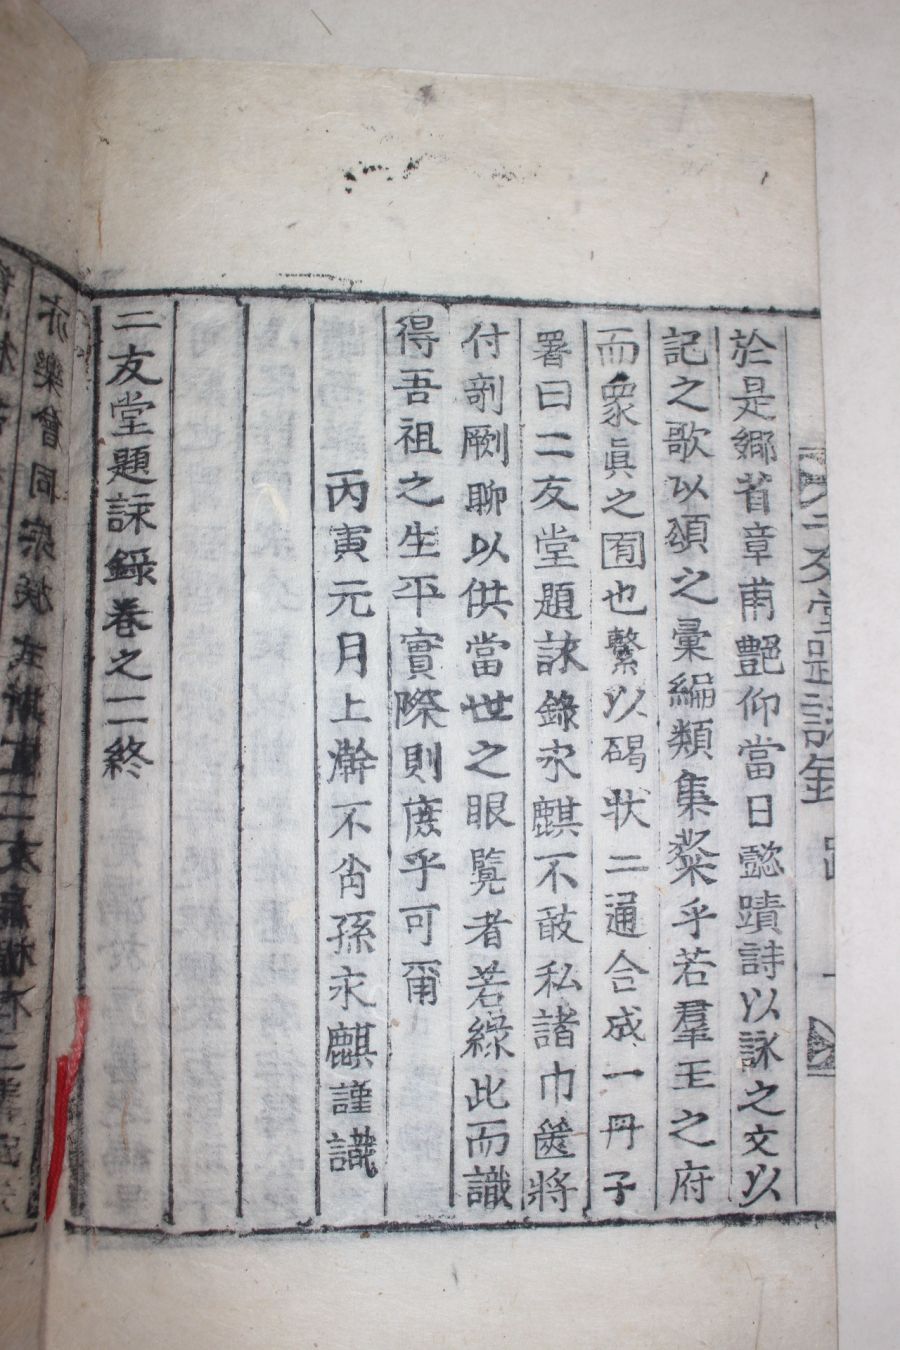 於是鄉省章甫艶仰當日懿蹟詩以詠之文以
記之歌以頌之彙編類集粲乎若羣玉之府
而衆眞之囿也繫以碣状二通合成一冊子
署曰二友堂題詠錄永麒不敢私諸巾篋將
付剞劂聊以供當世之眼覽者若緣此而識
得吾祖之生平實際則庶乎可爾
丙寅元月上澣不肖孫永麒謹識
二友堂題詠錄卷之二終